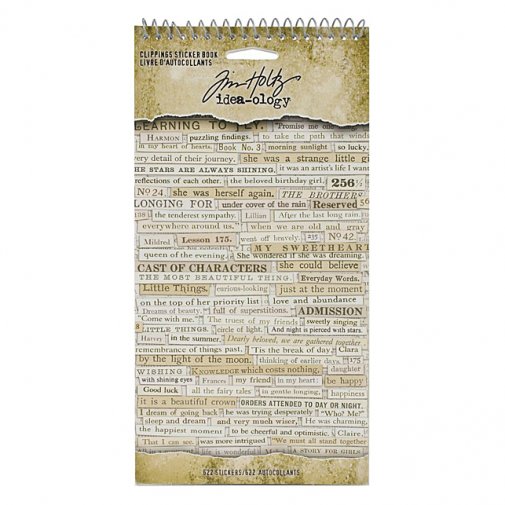 CLIPPINGS STICKER BOOK
LIVRE D'AUTOCOLLANTS
Tim Holtz
idea-ology
LEARNING TO FLY. "Promise me one
HARMON puzzling findings. to take the path that winds
in my heart of hearts. Book No. 3 morning sunlight so lucky.
very detail of their journey. she was a strange little gi
HE STARS ARE ALWAYS SHINING. it was an artist's life I want
reflections of each other. the beloved birthday girl. 256½
No 24. she was herself again. THE BROTHER
LONGING FOR under cover of the rain Reserved
the tenderest sympathy. Lillian After the last long rain.
everywhere around us." when we are old and gray
Mildred Lesson 175. went off bravely. 235 No 42.
MY SWEETHEART
queen of the evening. She wondered if she was dreaming.
CAST OF CHARACTERS she could believe
THE MOST BEAUTIFUL THING. Everyday Words.
Little Things. curious-looking just at the moment
on the top of her priority list love and abundance
Dreams of beauty. full of superstitions. ADMISSION
"Come with me." The truest of my friends sweetly singing
LITTLE THINGS. circle of light. And night is pierced with stars.
Harvey in the summer. Dearly beloved, we are gathered together
remembrance of things past. 'Tis the break of day. Clara
by the light of the moon. thinking of earlier days. 175
WISHING KNOWLEDGE which costs nothing. daughter
with shining eyes Frances my friend in my heart: be happy
Good luck all the fairy tales in gentle longing, happiness
it is a beautiful crown ORDERS ATTENDED TO DAY OR NIGHT.
I dream of going back he was trying desperately "Who? Me?"
sleep and dream and very much wiser. He was charming,
the happiest moment to be cheerful and optimistic. Claire.
That I can see. was more intrigued "We must all stand together
life is wonderful A STORY FOR GIRLS
622 STICKERS/622 AUTOCOLLANTS